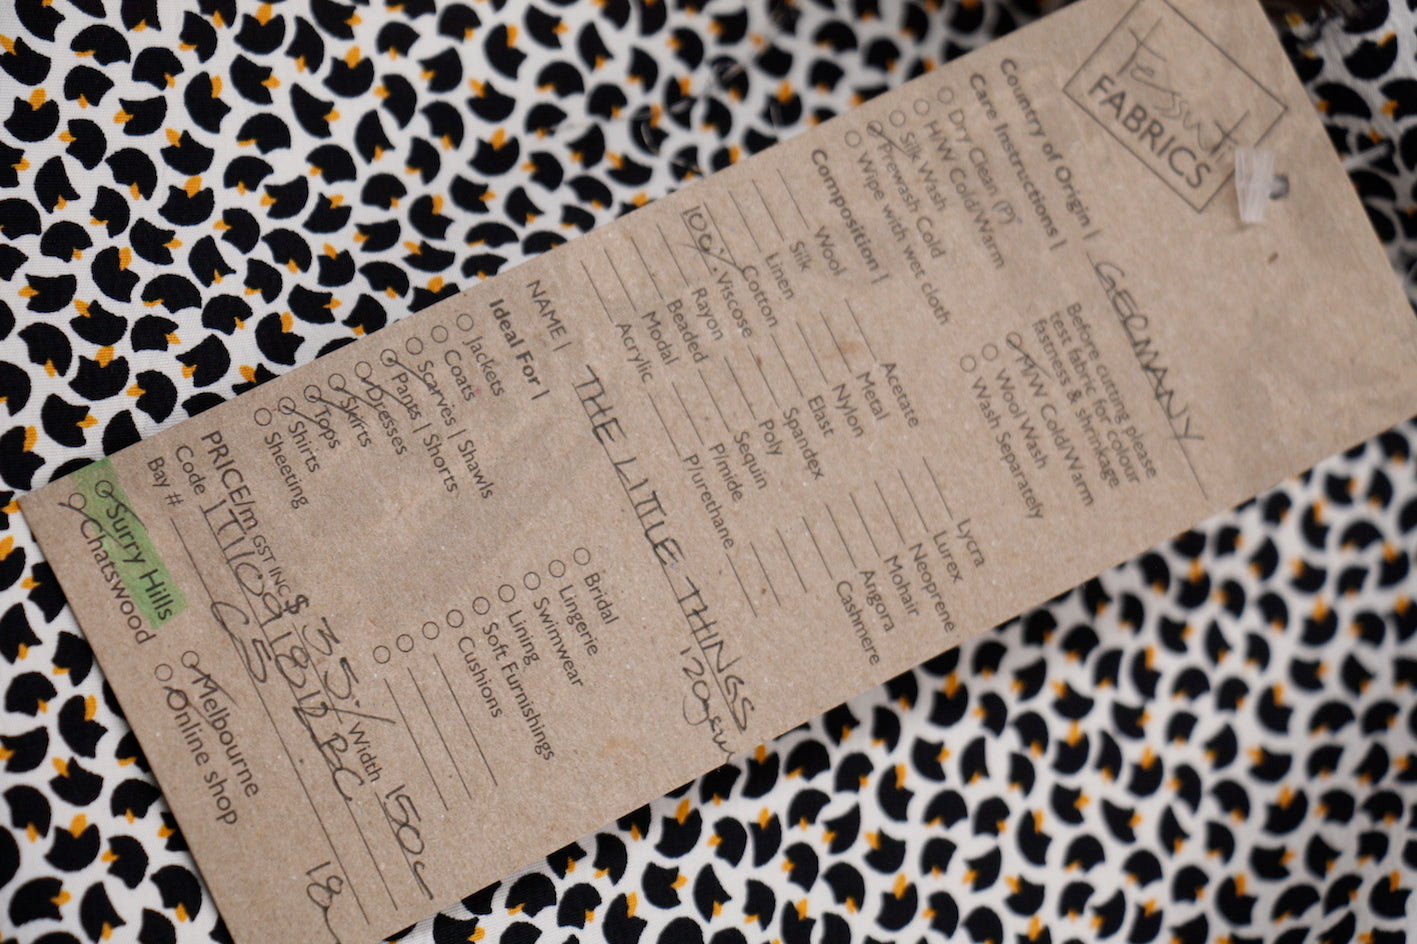 Tessuti
FABRICS
Country of Origin | GERMANY
Care Instructions |
Dry Clean (P)
H/W Cold/Warm
Silk Wash
Prewash Cold
Wipe with wet cloth
Before cutting please
test fabric for colour
fastness & shrinkage
M/W Cold/Warm
Wool Wash
Wash Separately
Composition |
Wool
Silk
Linen
Cotton
100% Viscose
Rayon
Beaded
Modal
Acrylic
Acetate
Metal
Nylon
Elast
Spandex
Poly
Sequin
P/mide
P/urethane
Lycra
Lurex
Neoprene
Mohair
Angora
Cashmere
NAME | THE LITTLE THINGS
Ideal For |
Jackets
Coats
Scarves | Shawls
Pants | Shorts
Dresses
Skirts
Tops
Shirts
Sheeting
Bridal
Lingerie
Swimwear
Lining
Soft Furnishings
Cushions
PRICE/m GST INC $ 35.- Width 150c
Code
Bay # C5
Surry Hills
Chatswood
Melbourne
Online shop